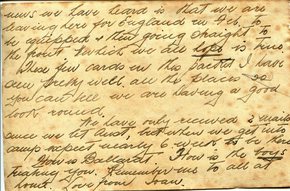 news we have heard is that we are
leaving here for England in Feb. to
be equipped & then going straight to
the front which we all hope is true.
These few cards on the Battle I have
seen pretty well all the places so
you can see we are having a good
look round.
We have only received 2 mails
since we left Aust, but when we get into
camp expect nearly 6 week to be here
How is Ballarat. How is the
treating you. Remember me to all at
home. Love from Ivan.